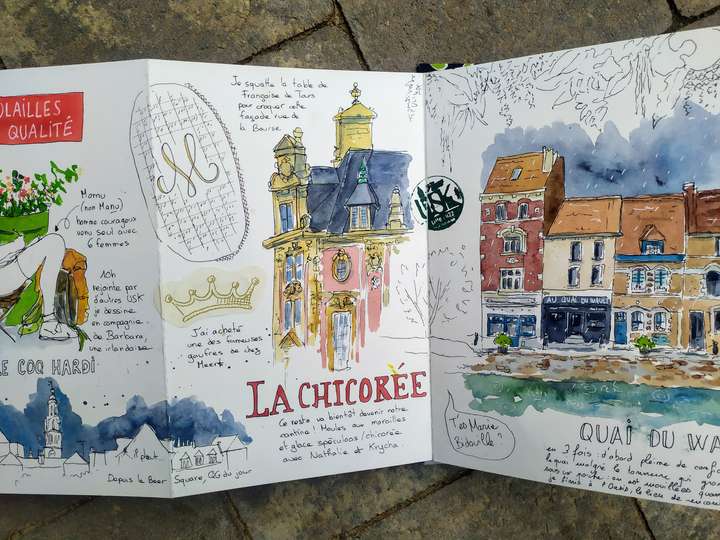 OLAILLES
QUALITÉ
Momu
(non Manu)
homme courageux
venu seul avec
6 femmes
10h
rejointe par
d'autres USK
je dessine
en compagnie
de Barbara,
une irlandaise
LE COQ HARDI
Il pleut
Depuis le Beer Square, QG du jour
Je squatte la table de
Françoise de Tours
pour croquer cette
façade rue de
la Bourse
M
J'ai acheté
une des fameuses
gaufres de chez
Meert
LA CHICORÉE
Ce resto va bientôt devenir notre
cantine ! Moules au maroilles
et glace spéculoos/chicorée
avec Nathalie et Krycha
USK
AU QUAI DU WAULT
T'es Marie
Bidouille ?
QUAI DU WA
en 3 fois : d'abord pleine de conf
lequel malgré le tonnerre qui gro
sous un porche : on est mouillées
je finis à